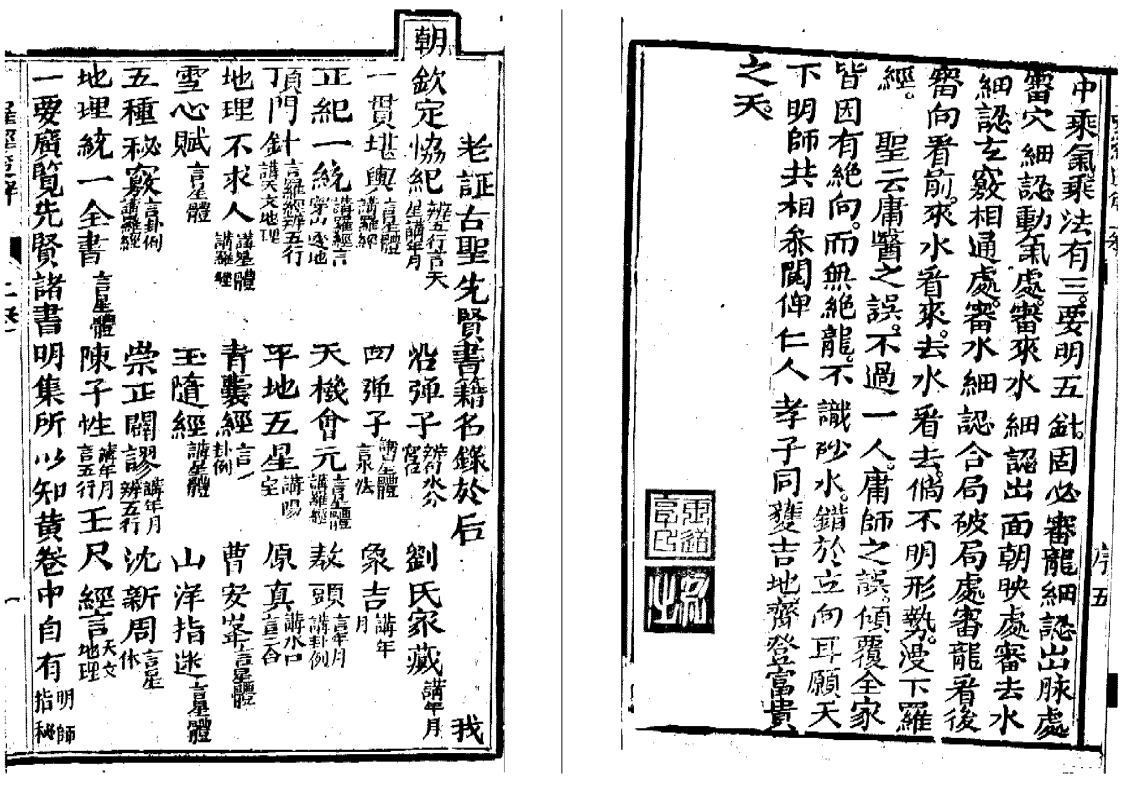 序五
中乘氣乘法有三。要明五針。固必審龍細認出脉處
審穴細認動氣處。審來水細認出面朝映處審去水
細認玄竅相通處。審水細認合局破局處審龍看後
審向看前。來水看來。去水看去。倘不明形勢。漫下羅
經。聖云庸醫之誤。不過一人。庸師之誤。傾覆全家
皆因有絕向。而無絕龍。不識砂水。錯於立向耳願天
下明師共相叅閱俾仁人孝子同獲吉地齊登富貴
之天。
朝
老証古聖先賢書籍名錄於后 我
欽定協紀 辨五行言天星講年月 沿弹子 辨砂水分宮位 劉氏家藏 講年月
一貫堪輿 言星體講羅經 四弹子 講星體言水法 象吉 講年月
正紀一統 講羅經言穿山透地 天機會元 言星體講羅經 敖頭 言年月講卦例
頂門針 言羅經辨五行講天文地理 平地五星 講陽宅 原真 講水口言三合
地理不求人 講星體講羅經 青囊經 言卦例 曹安峯 言星體
雪心賦 言星體 玉隨經 講星體 山洋指迷 言星體
五種秘竅 言卦例講羅經 崇正闢謬 講年月辨五行 沈新周 言星体
地理統一全書 言星體 陳子性 講年月言五行 王尺經 言天文地理
一要廣覧先賢諸書明集所以知黄卷中自有 明師指秘